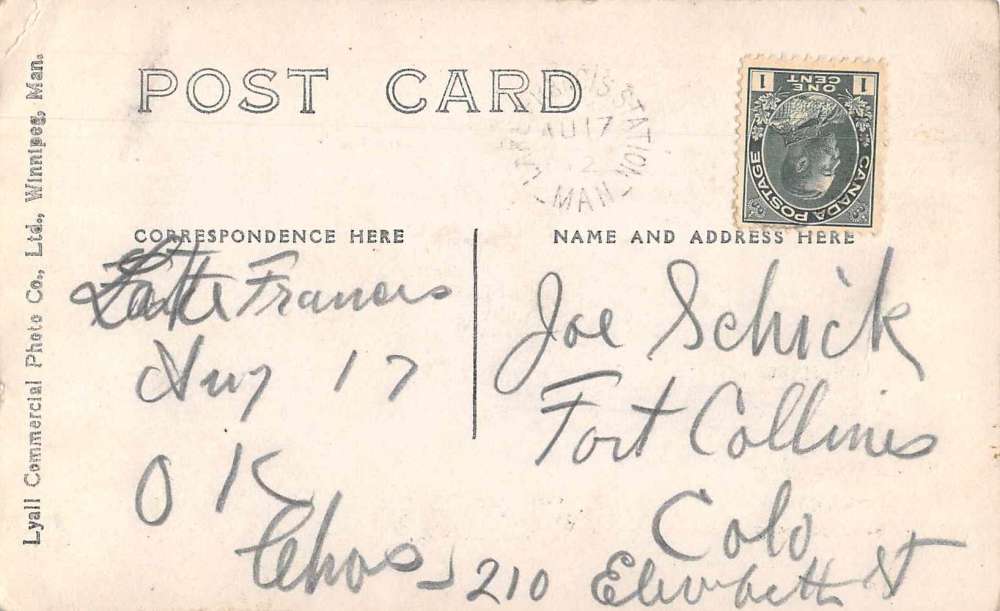 POST CARD
LAKE FRANCIS STATION
AU 17
2
MAN
1 ONE CENT 1
CANADA POSTAGE
Lyall Commercial Photo Co., Ltd., Winnipeg, Man.
CORRESPONDENCE HERE
Lake Francis
Aug 17
O K
Chas
NAME AND ADDRESS HERE
Joe Schick
Fort Collines
Colo
210 Elizabeth St